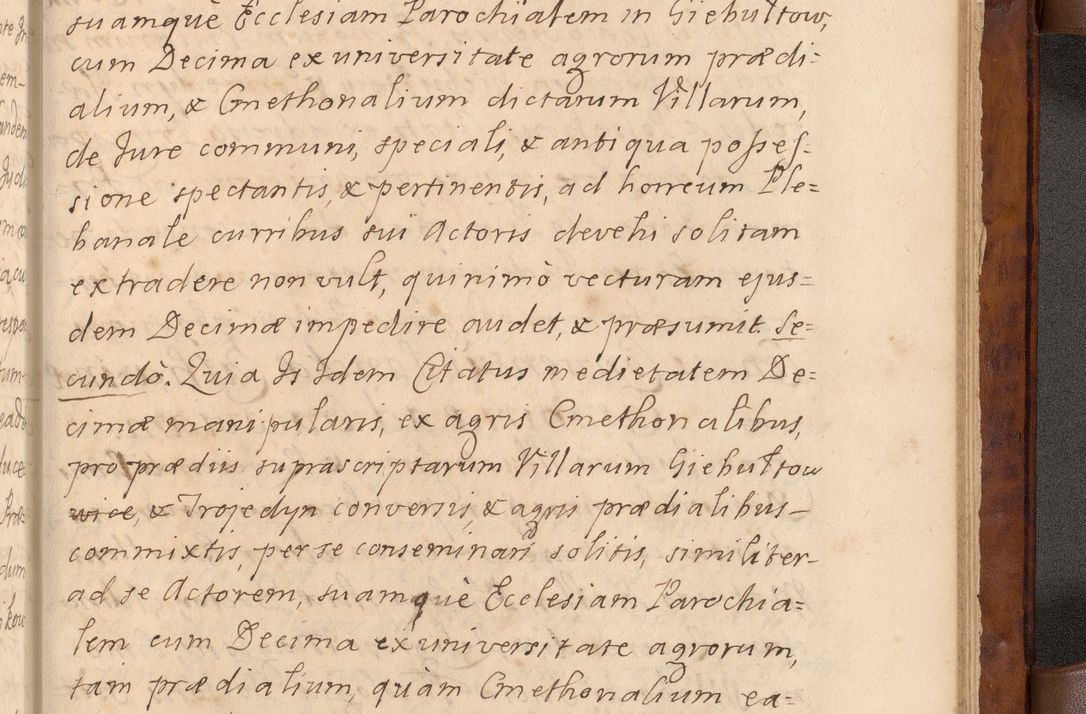 suamquè Ecclesiam Parochialem in Giebułtow,
cum Decima ex universitate agrorum prædi=
alium, & Cmethonalium dictarum Villarum,
de Jure communi, speciali, & antiqua posses-
sione spectantis, & pertinentis, ad horreum Ple=
banale curribus sui Actoris devehi solitam
extradere non vult, quinimò vecturam ejus=
dem Decimæ impedire audet, & præsumit. Se=
cundò. Quia Is Idem Citatus medietatem De=
cimæ manipularis, ex agris Cmethonalibus,
pro prædiis suprascriptarum Villarum Giebułtow
wice, & Trojedyn conversis, & agris prædialibus
commixtis, per se conseminari solitis, similiter
ad se Actorem, suamquè Ecclesiam Parochia=
lem cum Decima ex universitate agrorum,
tam prædialium, quàm Cmethonalium ea=